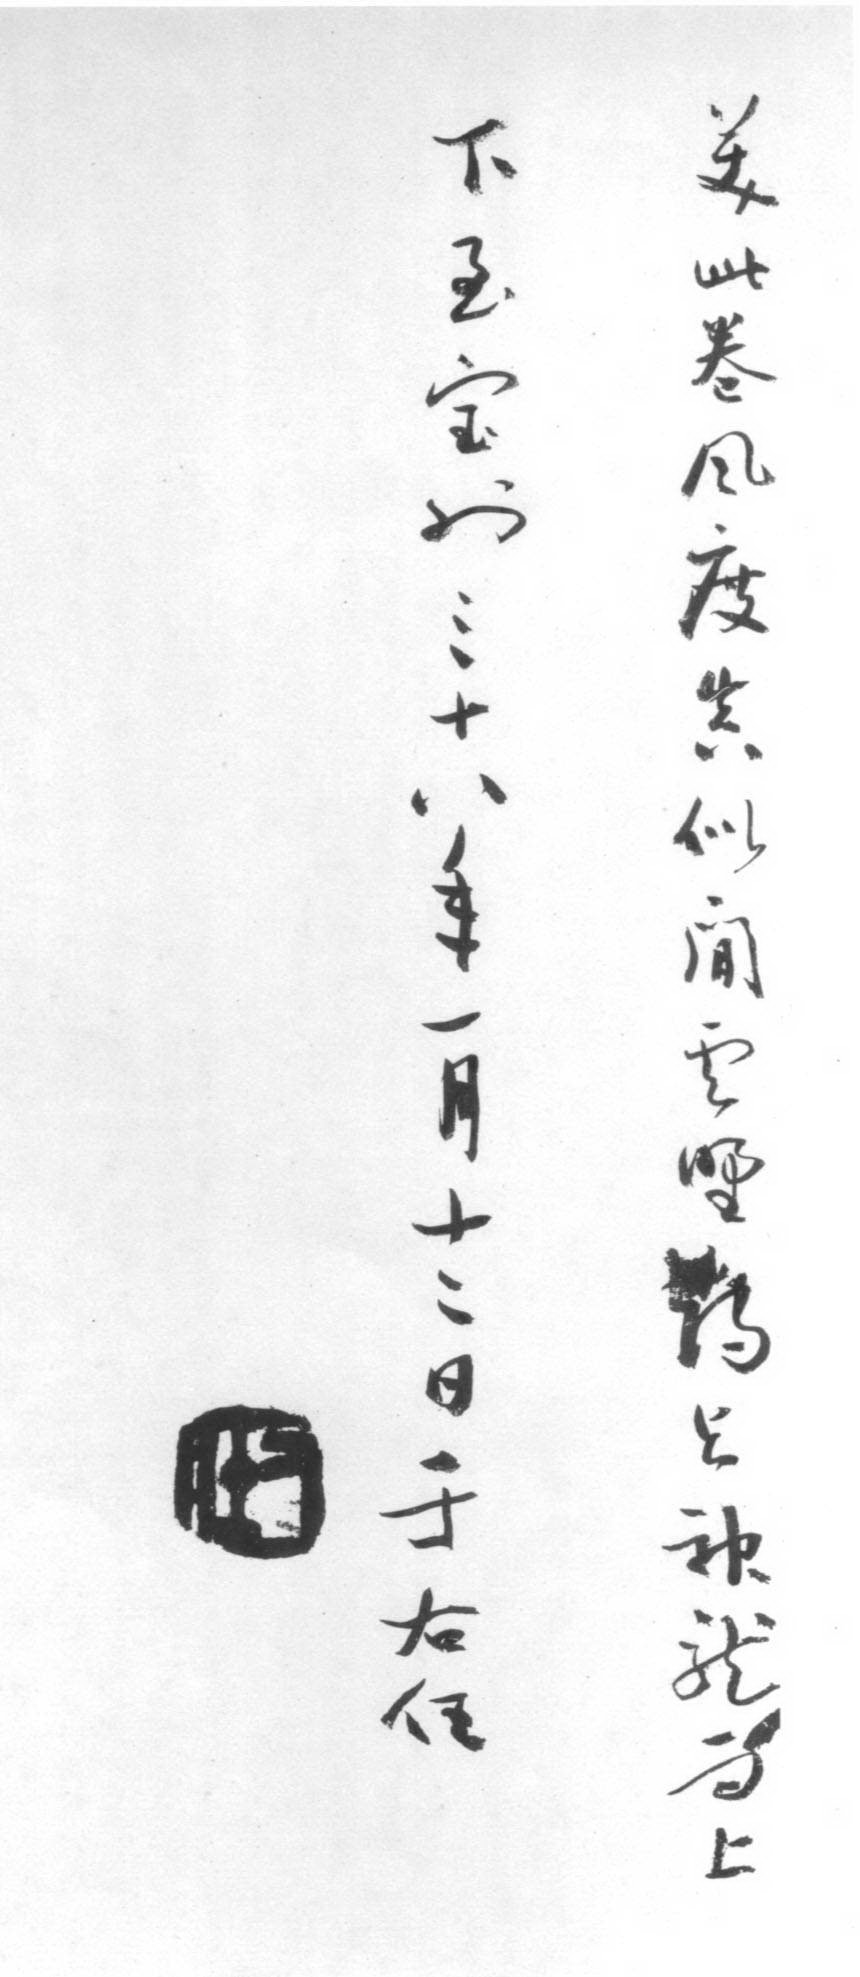 美此卷風度真似閒雲野鶴與神龍上
下至宝三十八年一月十二日于右任
右任